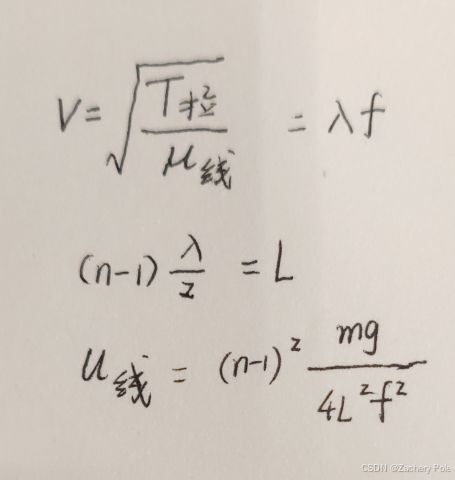 V = √(T拉/μ线) = λf
(n-1) λ/2 = L
μ线 = (n-1)² mg/(4L²f²)
CSDN @Zachery Pole